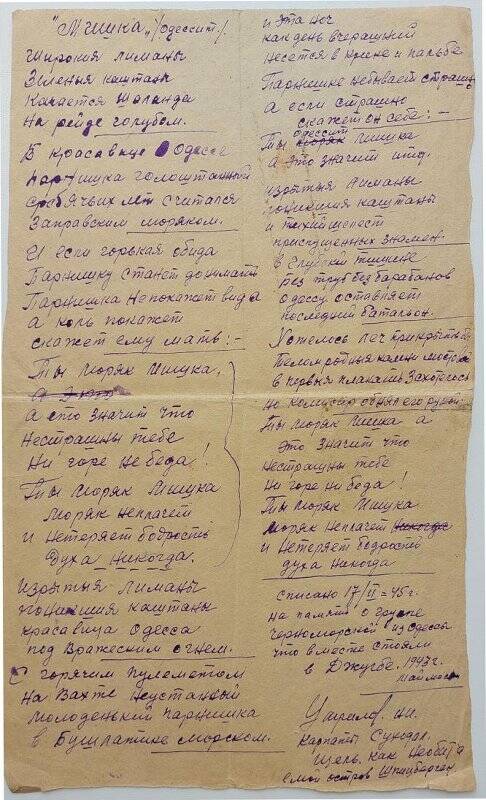 "Мишка" /одессит/.
Широкия лиманы
Зеленыя каштаны
Качается Шаланда
На рейде голубом.
В красавице Одессе
Парнишка голоштанный
с ребячьих лет считался
Заправским моряком.
И если горькая обида
Парнишку станет донимать
Парнишка Непокажет вида
а коль покажет
скажет ему мать:-
Ты моряк Мишка,
а это
а это значит что
Нестрашны тебе
Ни горе не беда!
Ты моряк Мишка
моряк неплачет
и Нетеряет бодрость
Духа никогда.
Изрытыя лиманы
поникшия каштаны
красавица Одесса
под Вражеским огнем.
С горячим пулеметом
На Вахте Неустанный
молоденький парнишка
в Бушлатике морском.
и эта ноч
как день вчерашний
несется в крике и пальбе
Парнишке небывает страшно
а если страшно
скажет он себе:-
одессит
Ты моряк Мишка
а это значит што.
изрытыя лиманы
поникшия каштаны
и тихий шелест
приспущенных знамен.
в глубокой тишине
без труб без барабанов
Одессу оставляет
последний батальон.
Хотелось леч прикрыть бы
Телом родныя камни мостовой
в первыя плакать Захотелось
но комиссар обнял его рукой:
Ты моряк Мишка а
это значит что
нестрашны тебе
Ни горе ни беда!
Ты моряк Мишка
моряк неплачет никогда
и Нетеряет бодрость
духа никогда
списано 17/II=45г.
на память о группе
черноморской из Одессы
что вместе стояли
в Джугбе. 1943г.
Карпаты
Щель. Как
остров Шпицберген